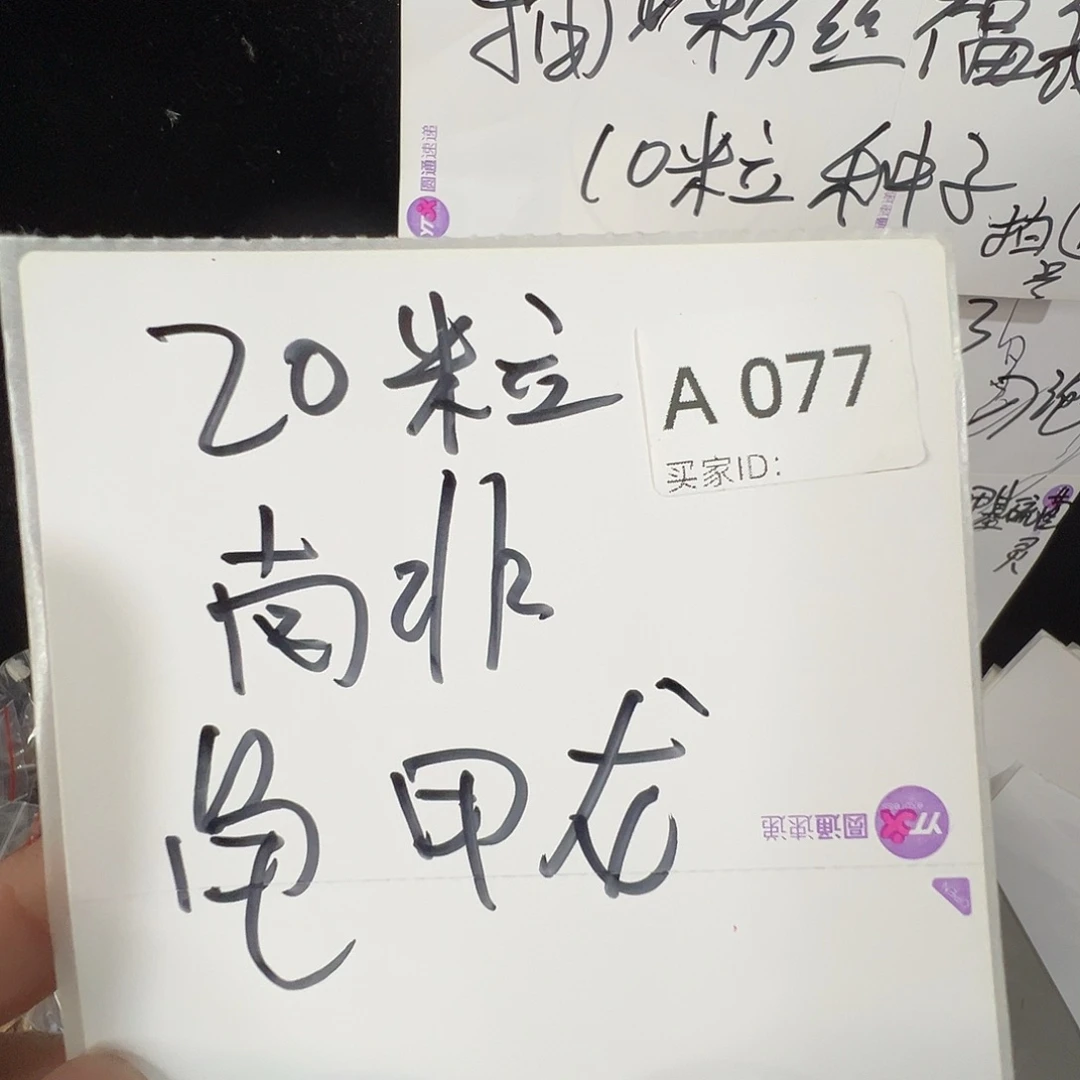 粉丝福
10粒种子
圆通速递
20粒
A 077
买家ID:
南非
龟甲龙
圆通速递
OPEN